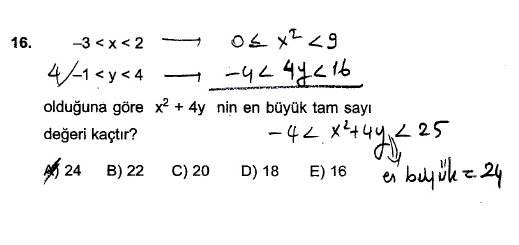 16. –3 < x < 2 → 0 ≤ x² < 9
4/ –1 < y < 4 → -4 < 4y < 16
olduğuna göre x² + 4y nin en büyük tam sayı
değeri kaçtır? -4 < x²+4y < 25
A) 24 B) 22 C) 20 D) 18 E) 16 en büyük = 24